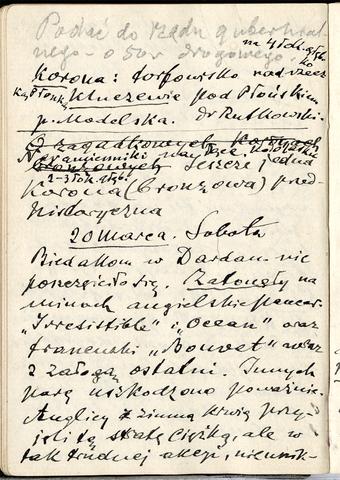 Podać do rządu gubernial-
nego - o 50r drogowego.
na 4 łok. głęb.
Korona: torfowisko nad rzecz
ką Płonką
Kluczewie pod Płońskiem
p. Modelska. dr Rutkowski.
O zagadkowych
bronzowych Jeszcze jedna
2-3 łok. głęb.
Korona (bronzowa) pred-
historyczna
20 Marca. Sobota
Biedakom w Dardan. nie
poszczęściło się. Zatonęły na
minach angielskie pancer.
"Irresistible" i "Ocean" oraz
francuski "Bouvet" wraz
z załogą ostatni. Innych
parę uszkodzono poważnie.
Anglicy z zimną krwią przy-
jęli tę stratę ciężką, ale w
tak trudnej akcji, nieunik-